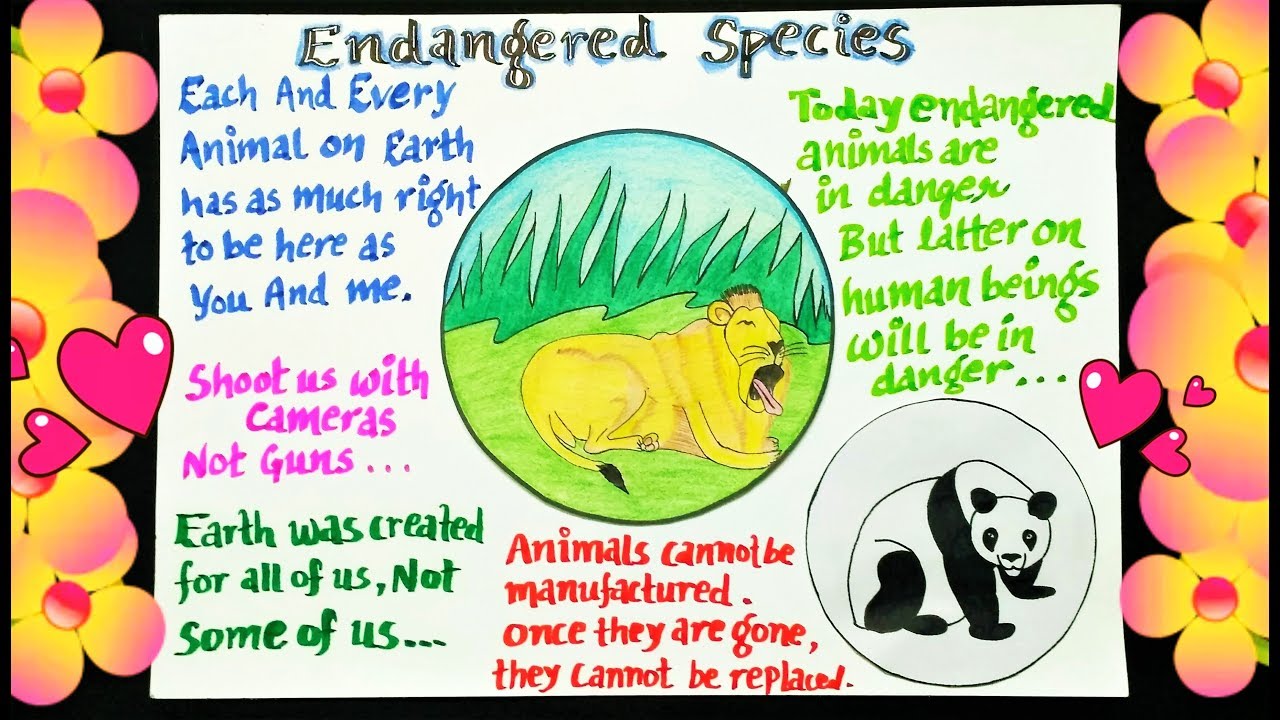 Endangered Species
Each And Every
Animal on Earth
has as much right
to be here as
You And me.
Shoot us with
Cameras
Not Guns...
Earth was created
for all of us, Not
Some of us...
Today endangered
animals are
in danger
But latter on
human beings
will be in
danger...
Animals cannot be
manufactured.
once they are gone,
they cannot be replaced.